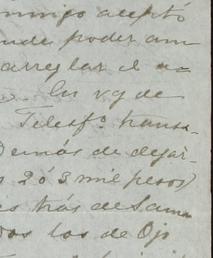 conmigo aceptó
poder am
arreglar el
En vg de
Telesfº transa
demás de dejar
2 ó 3 mil pesos)
más de Sama
dos los de Oj